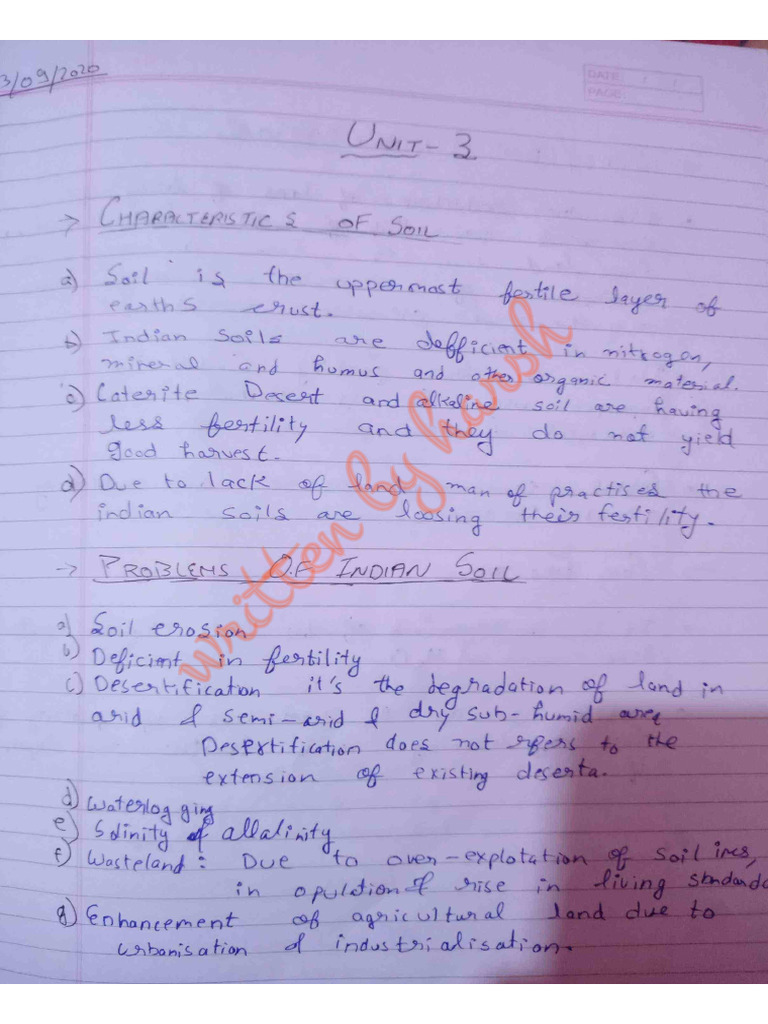 3/09/2020
DATE: / /
PAGE:
UNIT-3
→ CHARACTERISTICS OF SOIL
a) Soil is the uppermost fertile layer of
earths crust.
b) Indian Soils are defficient in nitrogen,
mineral and humus and other organic material.
c) Laterite Desert and alkaline soil are having
less fertility and they do not yield
good harvest.
d) Due to lack of land man of practises the
indian soils are loosing their fertility.
→ PROBLEMS OF INDIAN SOIL
a) Soil erosion
b) Deficient in fertility
c) Desertification it's the degradation of land in
arid & semi-arid & dry sub-humid area
Desertification does not refers to the
extension of existing deserta.
d) Waterlogging
e) Solinity of allalinity
f) Wasteland: Due to over-explotation of soil
in opulation & rise in living standards
g) Enhancement of agricultural land due to
urbanisation & industrialisation.
written by harsh